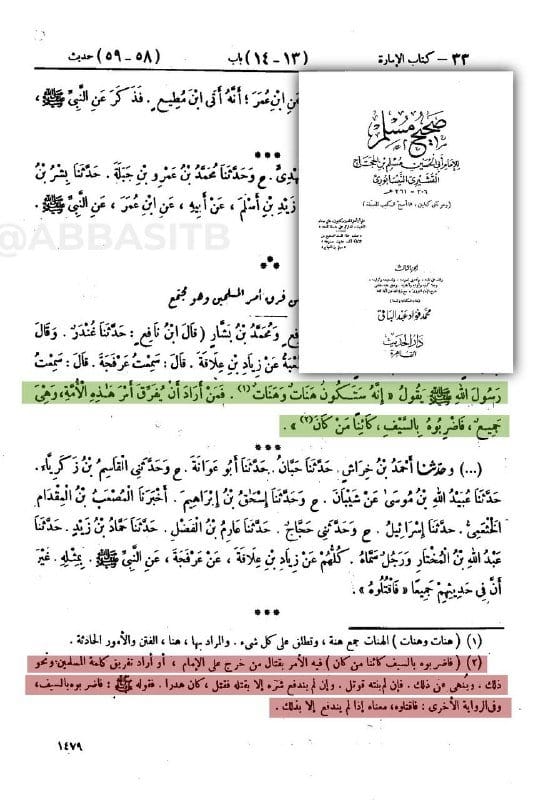 ٣٣ — كتاب الإمارة (١٣ - ١٤) باب (٥٨ - ٥٩) حديث
عَنِ ابْنِ عُمَرَ؛ أَنَّهُ أَتَى ابْنَ مُطِيعٍ. فَذَكَرَ عَنِ النَّبِيِّ ﷺ،
***
مَهْدِيٍّ. ح وَحَدَّثَنَا مُحَمَّدُ بْنُ عَمْرِو بْنِ جَبَلَةَ. حَدَّثَنَا بِشْرُ بْنُ
زَيْدِ بْنِ أَسْلَمَ، عَنْ أَبِيهِ، عَنِ ابْنِ عُمَرَ، عَنِ النَّبِيِّ ﷺ.
@ABBASITB
من فرق أمر المسلمين وهو مجتمع
وَمُحَمَّدُ بْنُ بَشَّارٍ (قَالَ ابْنُ نَافِعٍ: حَدَّثَنَا غُنْدَرٌ. وَقَالَ
عَنْ زِيَادِ بْنِ عِلَاقَةَ. قَالَ: سَمِعْتُ عَرْفَجَةَ. قَالَ: سَمِعْتُ
رَسُولَ اللهِ ﷺ يَقُولُ «إِنَّهُ سَتَكُونُ هَنَاتٌ وَهَنَاتٌ(١). فَمَنْ أَرَادَ أَنْ يُفَرِّقَ أَمْرَ هَٰذِهِ الْأُمَّةِ، وَهِيَ
جَمِيعٌ، فَاضْرِبُوهُ بِالسَّيْفِ، كَائِنًا مَنْ كَانَ(٢)».
***
(...) وحدثنا أَحْمَدُ بْنُ خِرَاشٍ. حَدَّثَنَا حَبَّانُ. حَدَّثَنَا أَبُو عَوَانَةَ. ح وَحَدَّثَنِي الْقَاسِمُ بْنُ زَكَرِيَّاءَ.
حَدَّثَنَا عُبَيْدُ اللهِ بْنُ مُوسَىٰ عَنْ شَيْبَانَ. ح وَحَدَّثَنَا إِسْحَٰقُ بْنُ إِبْرَاهِيمَ. أَخْبَرَنَا الْمُصْعَبُ بْنُ الْمِقْدَامِ
الْخَثْعَمِيُّ. حَدَّثَنَا إِسْرَائِيلُ. ح وَحَدَّثَنِي حَجَّاجٌ. حَدَّثَنَا عَارِمُ بْنُ الْفَضْلِ. حَدَّثَنَا حَمَّادُ بْنُ زَيْدٍ. حَدَّثَنَا
عَبْدُ اللهِ بْنُ الْمُخْتَارِ وَرَجُلٌ سَمَّاهُ. كُلُّهُمْ عَنْ زِيَادِ بْنِ عِلَاقَةَ، عَنْ عَرْفَجَةَ، عَنِ النَّبِيِّ ﷺ. بِمِثْلِهِ. غَيْرَ
أَنَّ فِي حَدِيثِهِمْ جَمِيعًا «فَاقْتُلُوهُ».
***
(١) (هنات وهنات) الهنات جمع هنة، وتطلق على كل شيء. والمراد بها، هنا، الفتن والأمور الحادثة.
(٢) (فاضربوه بالسيف كائنا من كان) فيه الأمر بقتال من خرج على الإمام، أو أراد تفريق كلمة المسلمين ونحو
ذلك. وينهى عن ذلك. فإن لم ينته قوتل. وإن لم يندفع شره إلا بقتله فقتل، كان هدرا. فقوله ﷺ: فاضربوه بالسيف،
وفي الرواية الأخرى: فاقتلوه، معناه إذا لم يندفع إلا بذلك.
١٤٧٩
صحيح مسلم
للإمام أبي الحسين مسلم بن الحجاج
القشيري النيسابوري
٢٠٦ - ٢٦١ هـ
الجزء الثالث
محمد فؤاد عبد الباقي
دار الحديث
القاهرة